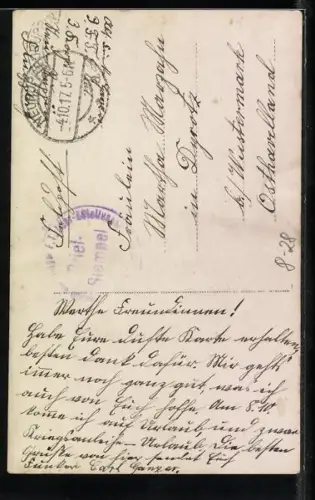 4.10.17. 5-6 N
Feldpost
Brief-
Stempel
Fräulein
Martha Marzahn
in Dyrotz
b/ Wustermark
Osthavelland
8-28
Werthe Freundinnen!
Habe Eure dufte Karte erhalten,
besten dank dafür. Mir geht
immer noch ganz gut, was ich
auch von Euch hoffe. Am 8.10
komme ich auf Urlaub und zwar
Kriegsanleihe-Urlaub. Die besten
Grüße von hier sendet Euch
Funker Carl